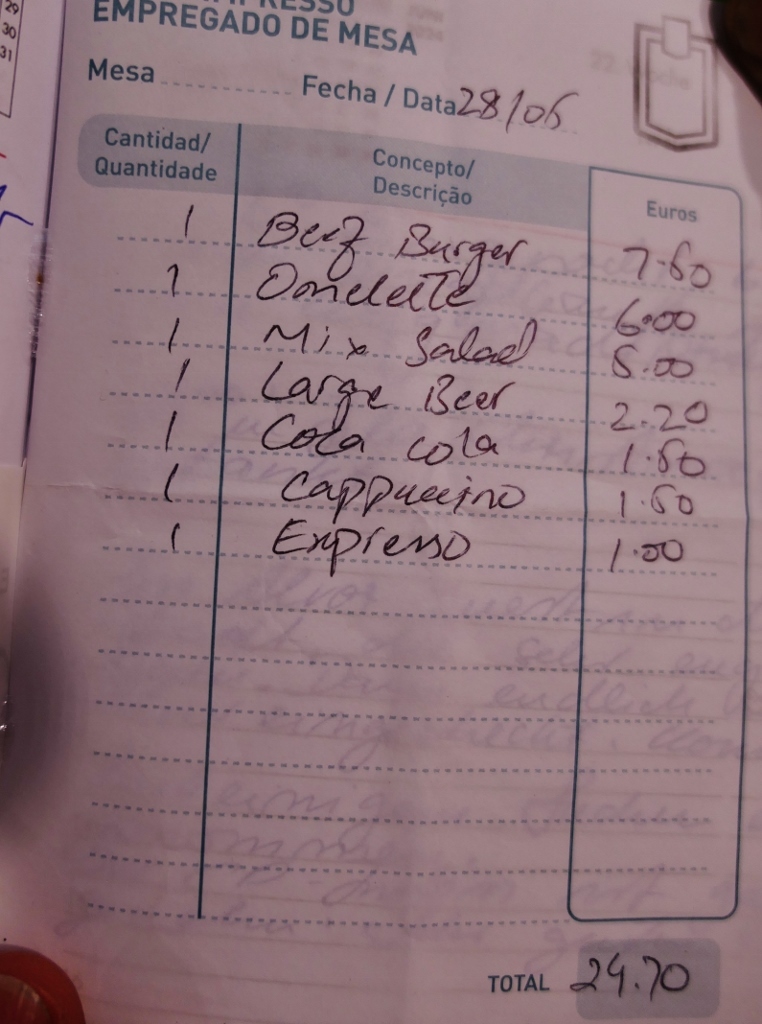 29
30
31
IMPRESSO
EMPREGADO DE MESA
Mesa Fecha / Data 28/05
Cantidad/ Quantidade Concepto/ Descrição Euros
1 Beef Burger 7.50
1 Omelette 6.00
1 Mix Salad 5.00
1 Large Beer 2.20
1 Cola cola 1.50
1 Cappuccino 1.50
1 Expresso 1.00
TOTAL 24.70